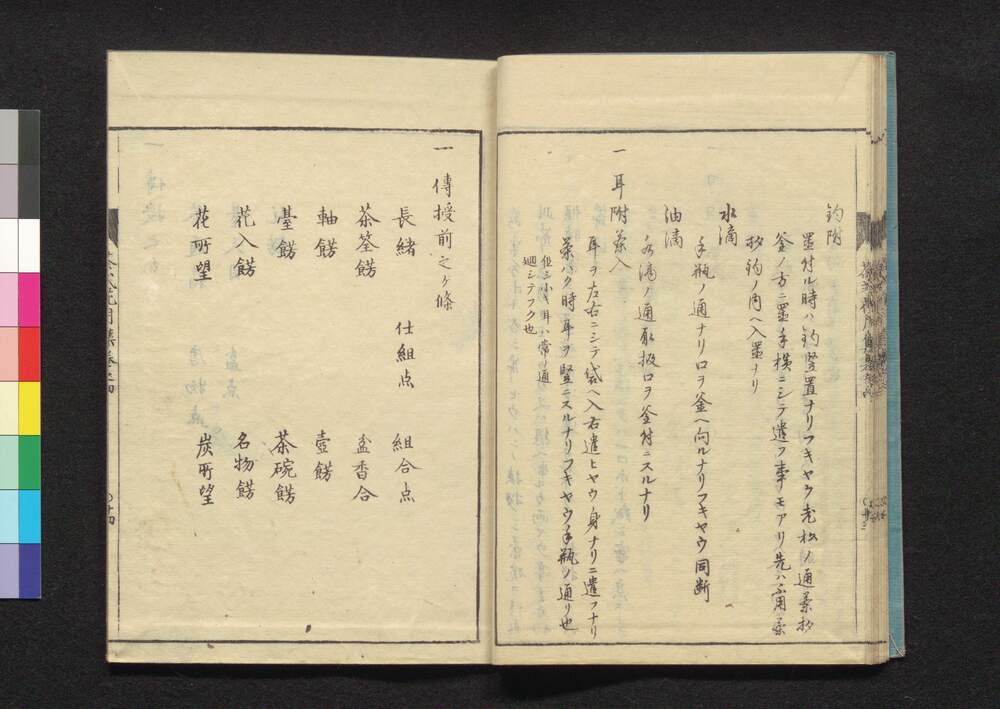 釣附
置付ル時ハ釣竪置ナリフキヤウ老松ノ通茶杓
釜ノ方ニ置手横ニシテ遣フ事モアリ先ハ不用茶
杓釣ノ内ヘ入置ナリ
水滴
手瓶ノ通ナリ口ヲ釜ヘ向ルナリフキヤウ同断
油滴
水滴ノ通取扱口ヲ釜付ニスルナリ
一 耳附茶入
耳ヲ左右ニシテ袋ヘ入右遣ヒヤウ身ナリニ遣フナリ
茶ハク時耳ヲ竪ニスルナリフキヤウ手瓶ノ通リ也
但シ小キ耳ハ常ノ通
廻シテフク也
一 傳授前之ヶ條
長緒 仕組点 組合点
茶筌餝 盆香合
軸餝 壺餝
臺餝 茶碗餝
花入餝 名物餝
花所望 炭所望